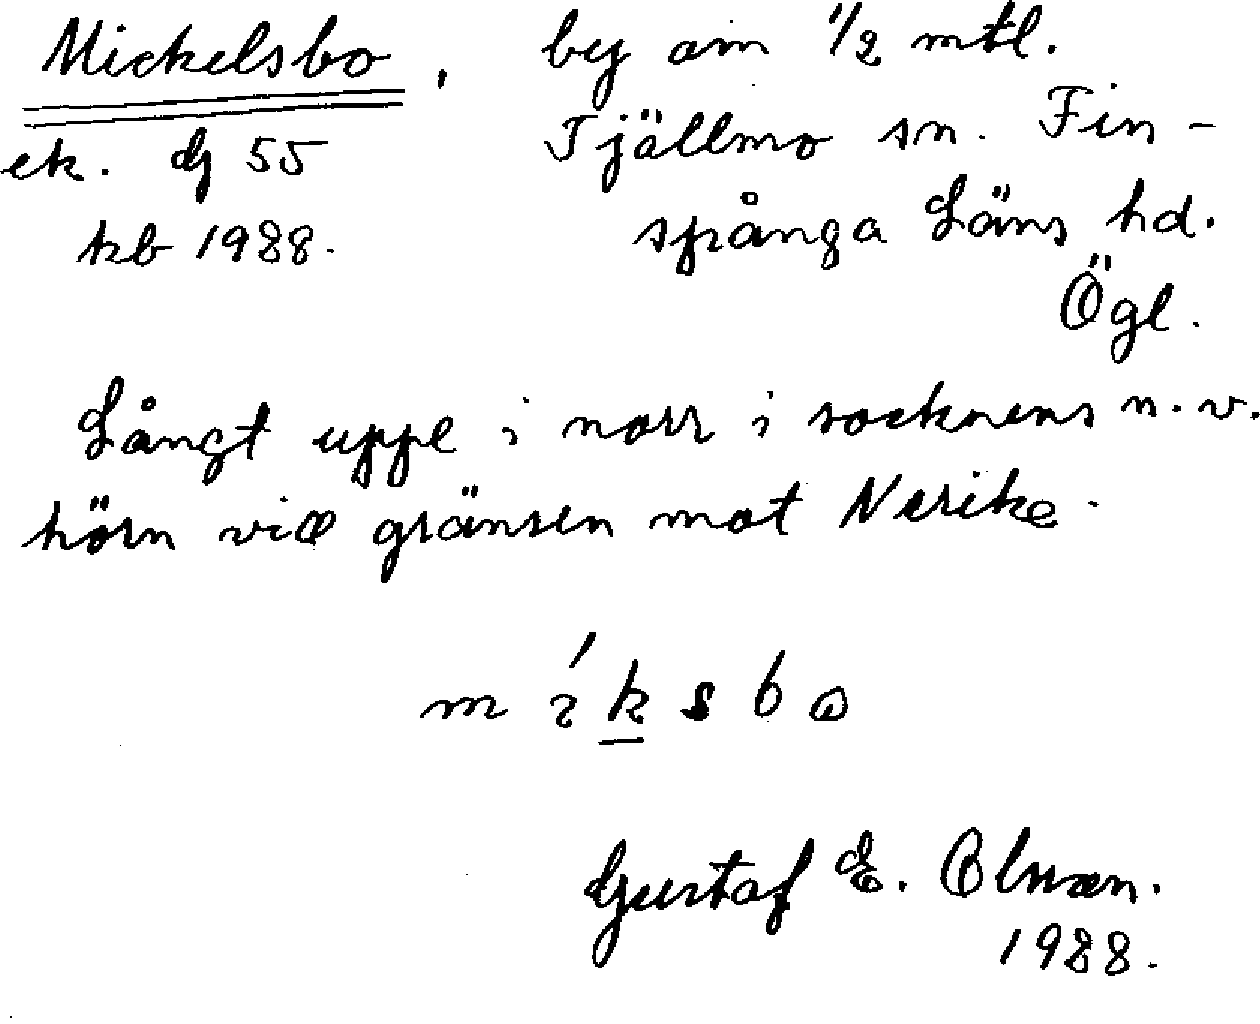 Mickelsbo, by om 1/2 mtl.
Tjällmo sn. Fin-
spånga Läns hd.
Ögl.
ek. dj 55
kb 1988.
Långt uppe i norr i socknens n.v.
hörn vid gränsen mot Nerike.
míksbo
Gustaf E. Olman.
1988.